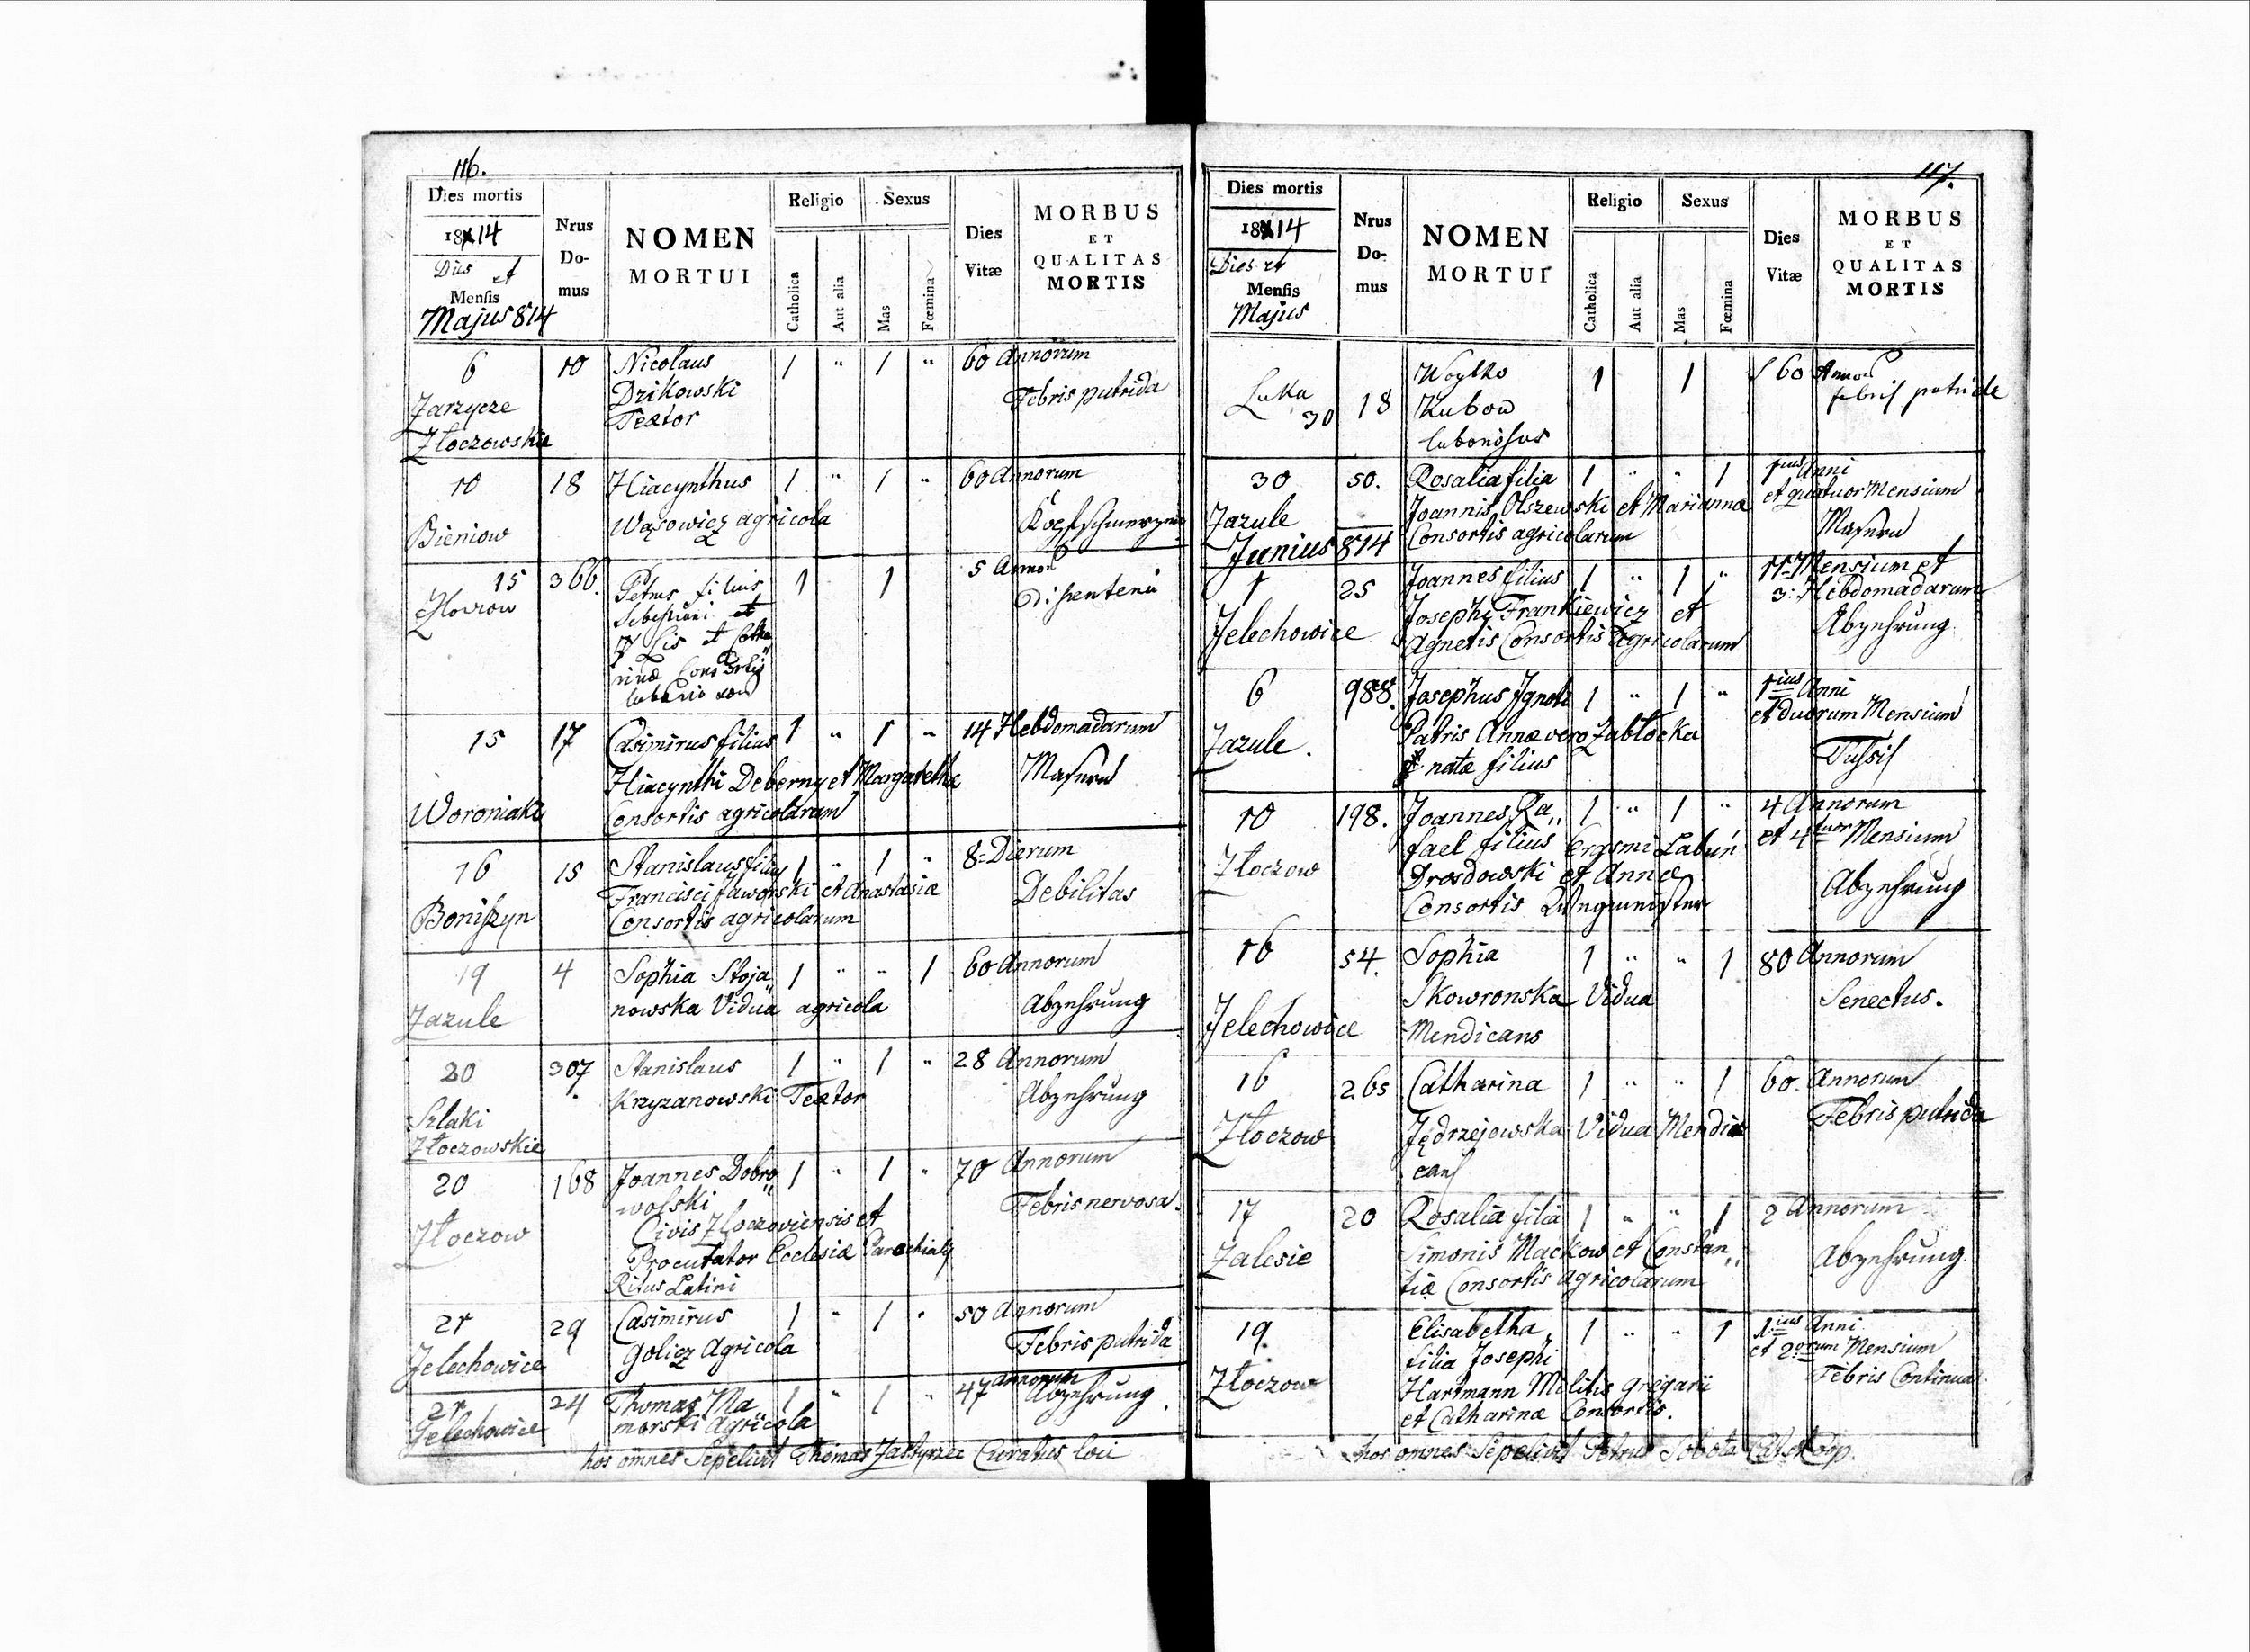 116.
Dies mortis
1814
Dies et
Mensis
Majus 814
Nrus Do- mus
NOMEN
MORTUI
Religio
Catholica
Aut alia
Sexus
Mas
Fœmina
Dies
Vitæ
MORBUS
ET
QUALITAS
MORTIS
6 10 Nicolaus 1 " 1 " 60 Annorum
Jarzycze Drikowski Febris putrida
Złoczowskie Textor
10 18 Hiacynthus 1 " 1 " 60 Annorum
Bieniow Wąsowicz agricola
15 366. Petrus filius 1 1 5 Annor
Lis et Catha
rinæ Consortis
15 17 Casimirus filius 1 " 1 " 14 Hebdomadarum
Hiacynthi Deberny et Margarethæ Masern
Woroniaki Consortis agricolarum
16 15 Stanislaus filius 1 " 1 " 8 Dierum
Francisci Jaworski et Anastasiæ Debilitas
Boniszyn Consortis agricolarum
19 4 Sophia Stoja 1 " " 1 60 Annorum
Jazule nowska Vidua agricola Abzehrung
20 307 Stanislaus 1 " 1 " 28 Annorum
Krzyzanowski Textor Abzehrung
Szlaki
Złoczowskie
20 168 Joannes Dobro 1 " 1 " 70 Annorum
wolski Febris nervosa.
Złoczow Civis Zloczoviensis et
Procurator Ecclesiæ Parochialis
Ritus Latini
21 29 Casimirus 1 " 1 " 50 Annorum
Jelechowice Golicz Agricola Febris putrida
21 24 Thomas Ma 1 " 1 " 47 Annorum Abzehrung.
Jelechowice morski Agricola
hos omnes Sepelivit Thomas Curatus loci
117.
Dies mortis
1814
Dies et
Mensis
Majus
Nrus Do- mus
NOMEN
MORTUI
Religio
Catholica
Aut alia
Sexus
Mas
Fœmina
Dies
Vitæ
MORBUS
ET
QUALITAS
MORTIS
Luka 30 18 Woytko 1 1 60 Annor
Kubow febris putrida
30 50. Rosalia filia 1 " " 1 1ius Anni
Jazule Joannis Olszewski et Mariannæ et quatuor Mensium
Consortis agricolarum Masern
Junius 814
1 25 Joannes filius 1 " 1 " 11 Mensium et
Josephi Frankiewicz et 3: Hebdomadarum
Jelechowice Agnetis Consortis Agricolarum Abzehrung
6 988. Josephus Ignoti 1 " 1 " 1ius Anni
et duorum Mensium
Jazule. Patris Annæ vero Zabłocka
natæ filius Tussis
10 198. Joannes Ra,, 1 " 1 " 4 Annorum
fael filius Erasmi Łabuń et 4tuor Mensium
Złoczow Drosdowski et Annæ
Consortis Abzehrung
16 54. Sophia 1 " " 1 80 Annorum
Skowronska Vidua Senectus.
Jelechowice Mendicans
16 265 Catharina 1 " " 1 60. Annorum
Złoczow Jędrzejowska Vidua Mendi Febris putrida
cans
17 20 Rosalia filia 1 " " 1 2 Annorum
Zalesie Simonis Mackow et Constan,, Abzehrung.
tiæ Consortis Agricolarum
19. Elisabetha 1 " " 1 1ius Anni
filia Josephi et 2orum Mensium
Złoczow Hartmann Militis gregarii Febris Continua
et Catharinæ Consortis.
hos omnes Sepelivit Petrus Sobota